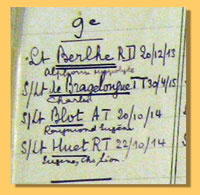 9e
Lt Berthe RI 20/12/13
Alphonse Hippolyte
S/Lt de Bragelongue TT 30/4/15
Charles
S/Lt Blot AT 20/10/14
Raymond Eugène
S/Lt Huet RT 22/10/14
Eugène, Chs, Léon